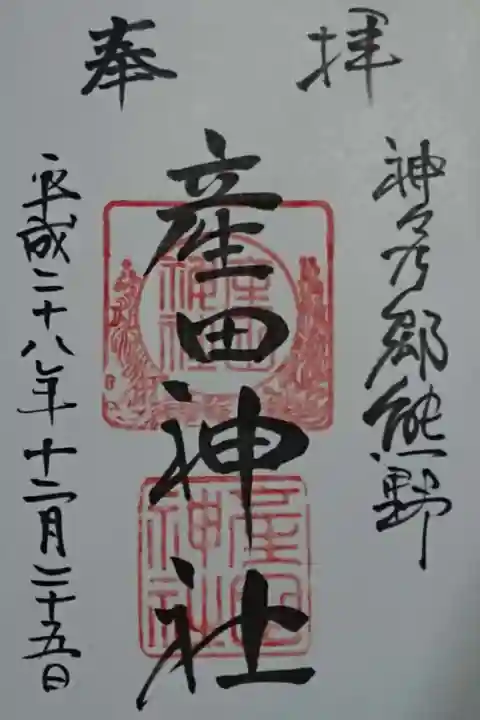 奉拝
神々乃郷熊野
産田神社
産田神社
産田神社
平成二十八年十二月二十五日